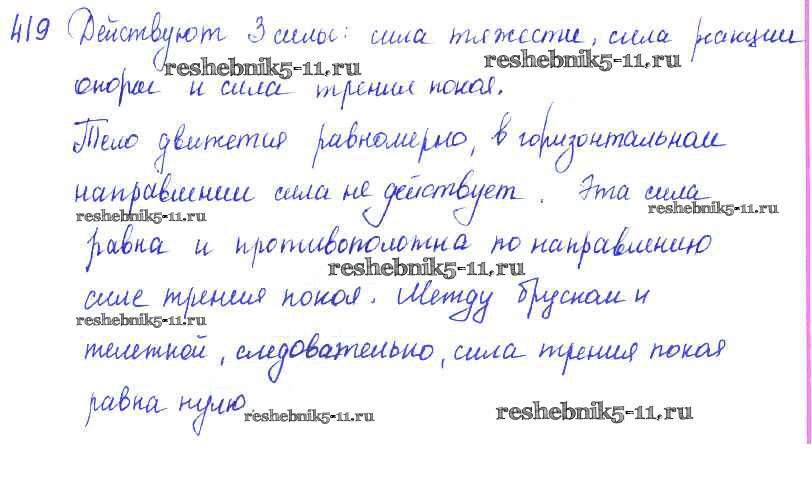 419 Действуют 3 силы: сила тяжести, сила реакции
reshebnik5-11.ru reshebnik5-11.ru
опоры и сила трения покоя.
Тело движется равномерно, в горизонтальном
направлении сила не действует. Эта сила
reshebnik5-11.ru reshebnik5-11.ru
равна и противоположна по направлению
reshebnik5-11.ru
силе трения покоя. Между бруском и
reshebnik5-11.ru
тележкой, следовательно, сила трения покоя
равна нулю.
reshebnik5-11.ru reshebnik5-11.ru